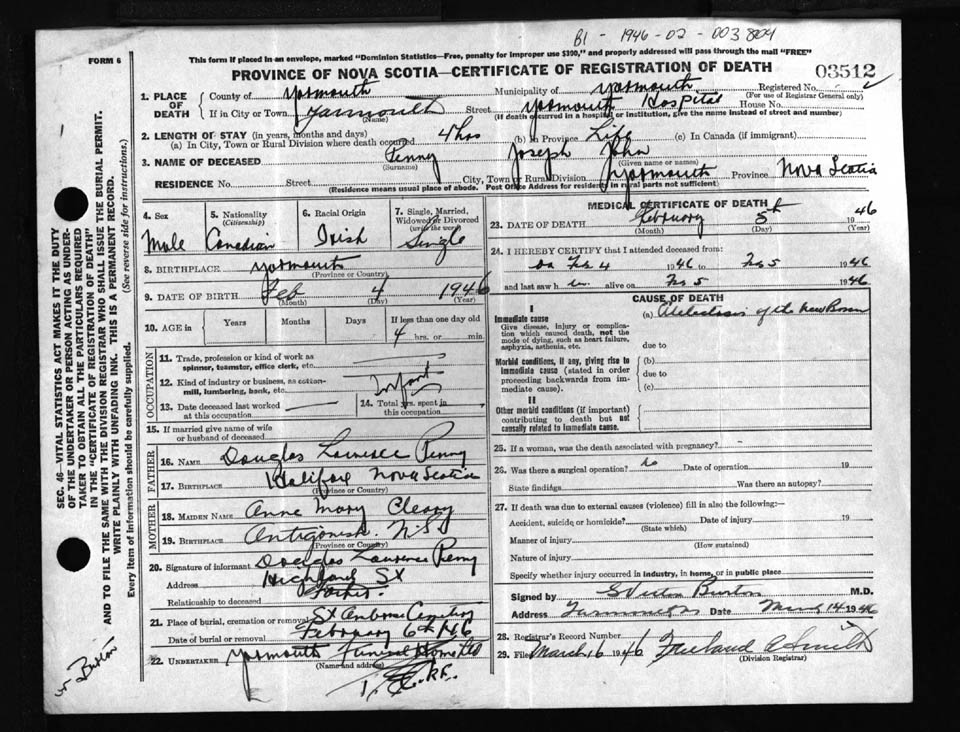 B1 - 1946 - 02 - 003804
FORM 6
This form if placed in an envelope, marked "Dominion Statistics—Free, penalty for improper use $300," and properly addressed will pass through the mail "FREE"
PROVINCE OF NOVA SCOTIA—CERTIFICATE OF REGISTRATION OF DEATH
03512
1. PLACE OF DEATH
County of Yarmouth Municipality of Yarmouth Registered No.
(For use of Registrar General only)
If in City or Town Yarmouth Street Yarmouth Hospital House No.
(Name) (If death occurred in a hospital or institution, give the name instead of street and number)
2. LENGTH OF STAY (in years, months and days)
(a) In City, Town or Rural Division where death occurred 4 hrs (b) in Province Life (c) In Canada (if immigrant)
3. NAME OF DECEASED Penny Joseph John
(Surname) (Given name or names)
RESIDENCE No. Street City, Town or Rural Division Yarmouth Province Nova Scotia
(Residence means usual place of abode. Post Office Address for residents in rural parts not sufficient)
4. Sex
Male
5. Nationality (Citizenship)
Canadian
6. Racial Origin
Irish
7. Single, Married, Widowed or Divorced (write the word)
Single
8. BIRTHPLACE Yarmouth
(Province or Country)
9. DATE OF BIRTH Feb 4 1946
(Month) (Day) (Year)
10. AGE in Years Months Days If less than one day old
4 hrs. or min.
OCCUPATION
11. Trade, profession or kind of work as spinner, teamster, office clerk, etc.
12. Kind of industry or business, as cotton-mill, lumbering, bank, etc. Infant
13. Date deceased last worked at this occupation
14. Total yrs. spent in this occupation
15. If married give name of wife or husband of deceased
FATHER
16. NAME Douglas Lawrence Penny
17. BIRTHPLACE Halifax Nova Scotia
(Province or Country)
MOTHER
18. MAIDEN NAME Anne Mary Cleary
19. BIRTHPLACE Antigonish N.S
(Province or Country)
20. Signature of informant Douglas Lawrence Penny
Address Highland St
Relationship to deceased Father
21. Place of burial, cremation or removal St Ambrose Cemetery
Date of burial or removal February 6th 46
22. UNDERTAKER Yarmouth Funeral Home Ltd
(Name and address)
MEDICAL CERTIFICATE OF DEATH
23. DATE OF DEATH February 5th 1946
(Month) (Day) (Year)
24. I HEREBY CERTIFY that I attended deceased from:
on Feb 4 1946 to Feb 5 1946
and last saw h im alive on Feb 5 1946
CAUSE OF DEATH
I
Immediate cause
Give disease, injury or complication which caused death, not the mode of dying, such as heart failure, asphyxia, asthenia, etc.
(a) Atelectasis of the New Born
due to
Morbid conditions, if any, giving rise to immediate cause (stated in order proceeding backwards from immediate cause).
(b)
due to
(c)
II
Other morbid conditions (if important) contributing to death but not causally related to immediate cause.
25. If a woman, was the death associated with pregnancy?
26. Was there a surgical operation? no Date of operation 19
State findings Was there an autopsy?
27. If death was due to external causes (violence) fill in also the following:
Accident, suicide or homicide? Date of injury 19
(State which)
Manner of injury
(How sustained)
Nature of injury
Specify whether injury occurred in industry, in home, or in public place
Signed by Burton M.D.
Address Yarmouth Date March 14 1946
28. Registrar's Record Number
29. Filed March 16 1946 Smith
(Division Registrar)
SEC. 46—VITAL STATISTICS ACT MAKES IT THE DUTY OF THE UNDERTAKER OR PERSON ACTING AS UNDERTAKER TO OBTAIN ALL THE PARTICULARS REQUIRED IN THE "CERTIFICATE OF REGISTRATION OF DEATH" AND TO FILE THE SAME WITH THE DIVISION REGISTRAR WHO SHALL ISSUE THE BURIAL PERMIT.
WRITE PLAINLY WITH UNFADING INK. THIS IS A PERMANENT RECORD.
Every item of information should be carefully supplied. (See reverse side for instructions.)
Burton